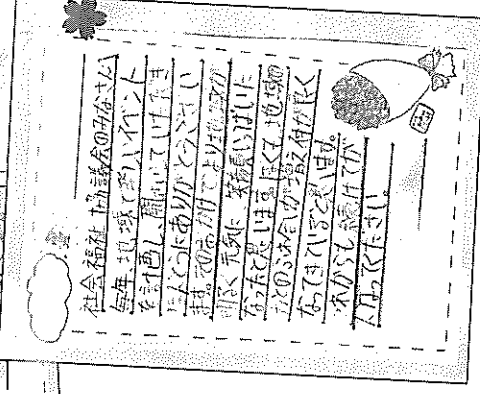 社会福祉協議会のみなさんへ
毎年、地域で楽しいイベント
を計画し、開いていただき
ほんとうにありがとうござい
ます。そのおかげでよりまちが
明るく元気に、笑顔いっぱいに
なったと思います。そして、地域の
人とのふれ合いが増え仲が良く
なってきていると思います。
これからも続けてが
んばってください。